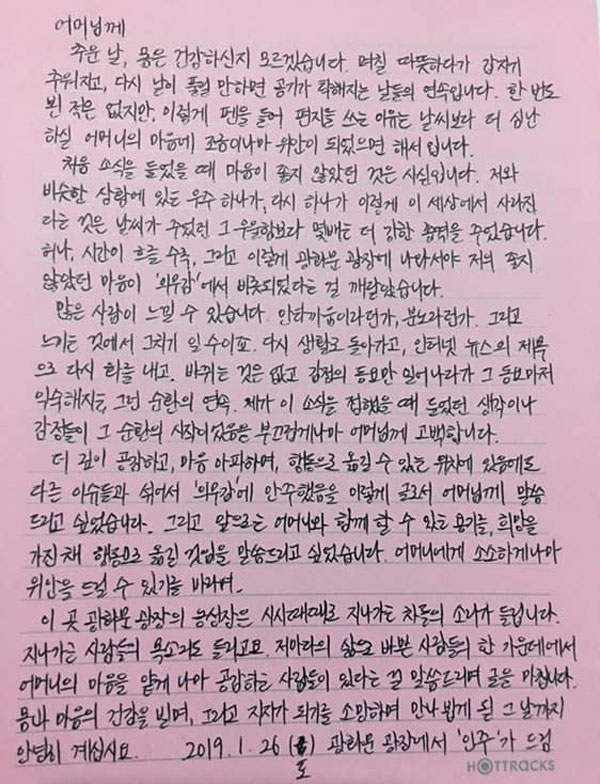 어머님께
추운 날, 몸은 건강하신지 모르겠습니다. 며칠 따뜻하다가 갑자기
추워지고, 다시 날이 풀릴 만하면 공기가 탁해지는 날들의 연속입니다. 한 번도
뵌 적은 없지만, 이렇게 펜을 들어 편지를 쓰는 이유는 날씨보다 더 심난
하실 어머니의 마음에 조금이나마 위안이 되었으면 해서 입니다.
처음 소식을 들었을 때 마음이 좋지 않았던 것은 사실입니다. 저와
비슷한 상황에 있는 우주 하나가, 다시 하나가 이렇게 이 세상에서 사라진
다는 것은 날씨가 주었던 그 우울함보다 몇배는 더 강한 충격을 주었습니다.
허나, 시간이 흐를 수록, 그리고 이렇게 광화문 광장에 나와서야 저의 좋지
않았던 마음이 '의무감'에서 비롯되었다는 걸 깨달았습니다.
많은 사람이 느낄 수 있습니다. 안타까움이라던가, 분노라던가. 그리고
느끼는 것에서 그치기 일 수이죠. 다시 생활로 돌아가고, 인터넷 뉴스의 제목
으로 다시 화를 내고. 바뀌는 것은 없고 감정의 동요만 일어나다가 그 동요마저
익숙해지는, 그런 순환의 연속. 제가 이 소식을 접했을 때 들었던 생각이나
감정들이 그 순환의 시작이었음을 부끄럽게나마 어머님께 고백합니다.
더 깊이 공감하고, 마음 아파하며, 행동으로 옮길 수 있는 위치에 있음에도
다른 이슈들과 섞어서 '의무감'에 안주했음을 이렇게 글로서 어머님께 말씀
드리고 싶었습니다. 그리고 앞으로는 어머니와 함께 할 수 있는 용기를, 희망을
가진 채 행동으로 옮길 것임을 말씀드리고 싶었습니다. 어머니에게 소소하게나마
위안을 드릴 수 있기를 바라며.
이 곳 광화문 광장의 농성장은 시시때때로 지나가는 차들의 소리가 들립니다.
지나가는 사람들의 목소리도 들리고요. 저마다의 삶으로 바쁜 사람들의 한 가운데에서
어머니의 마음을 얕게 나마 공감하는 사람들이 있다는 걸 말씀드리며 글을 마칩니다.
몸과 마음의 건강을 빌며, 그리고 지지가 되기를 소망하며 만나 뵙게 될 그 날까지
안녕히 계십시오. 2019. 1. 26 (토) 광화문 광장에서 '인주'가 드림
HOTTRACKS